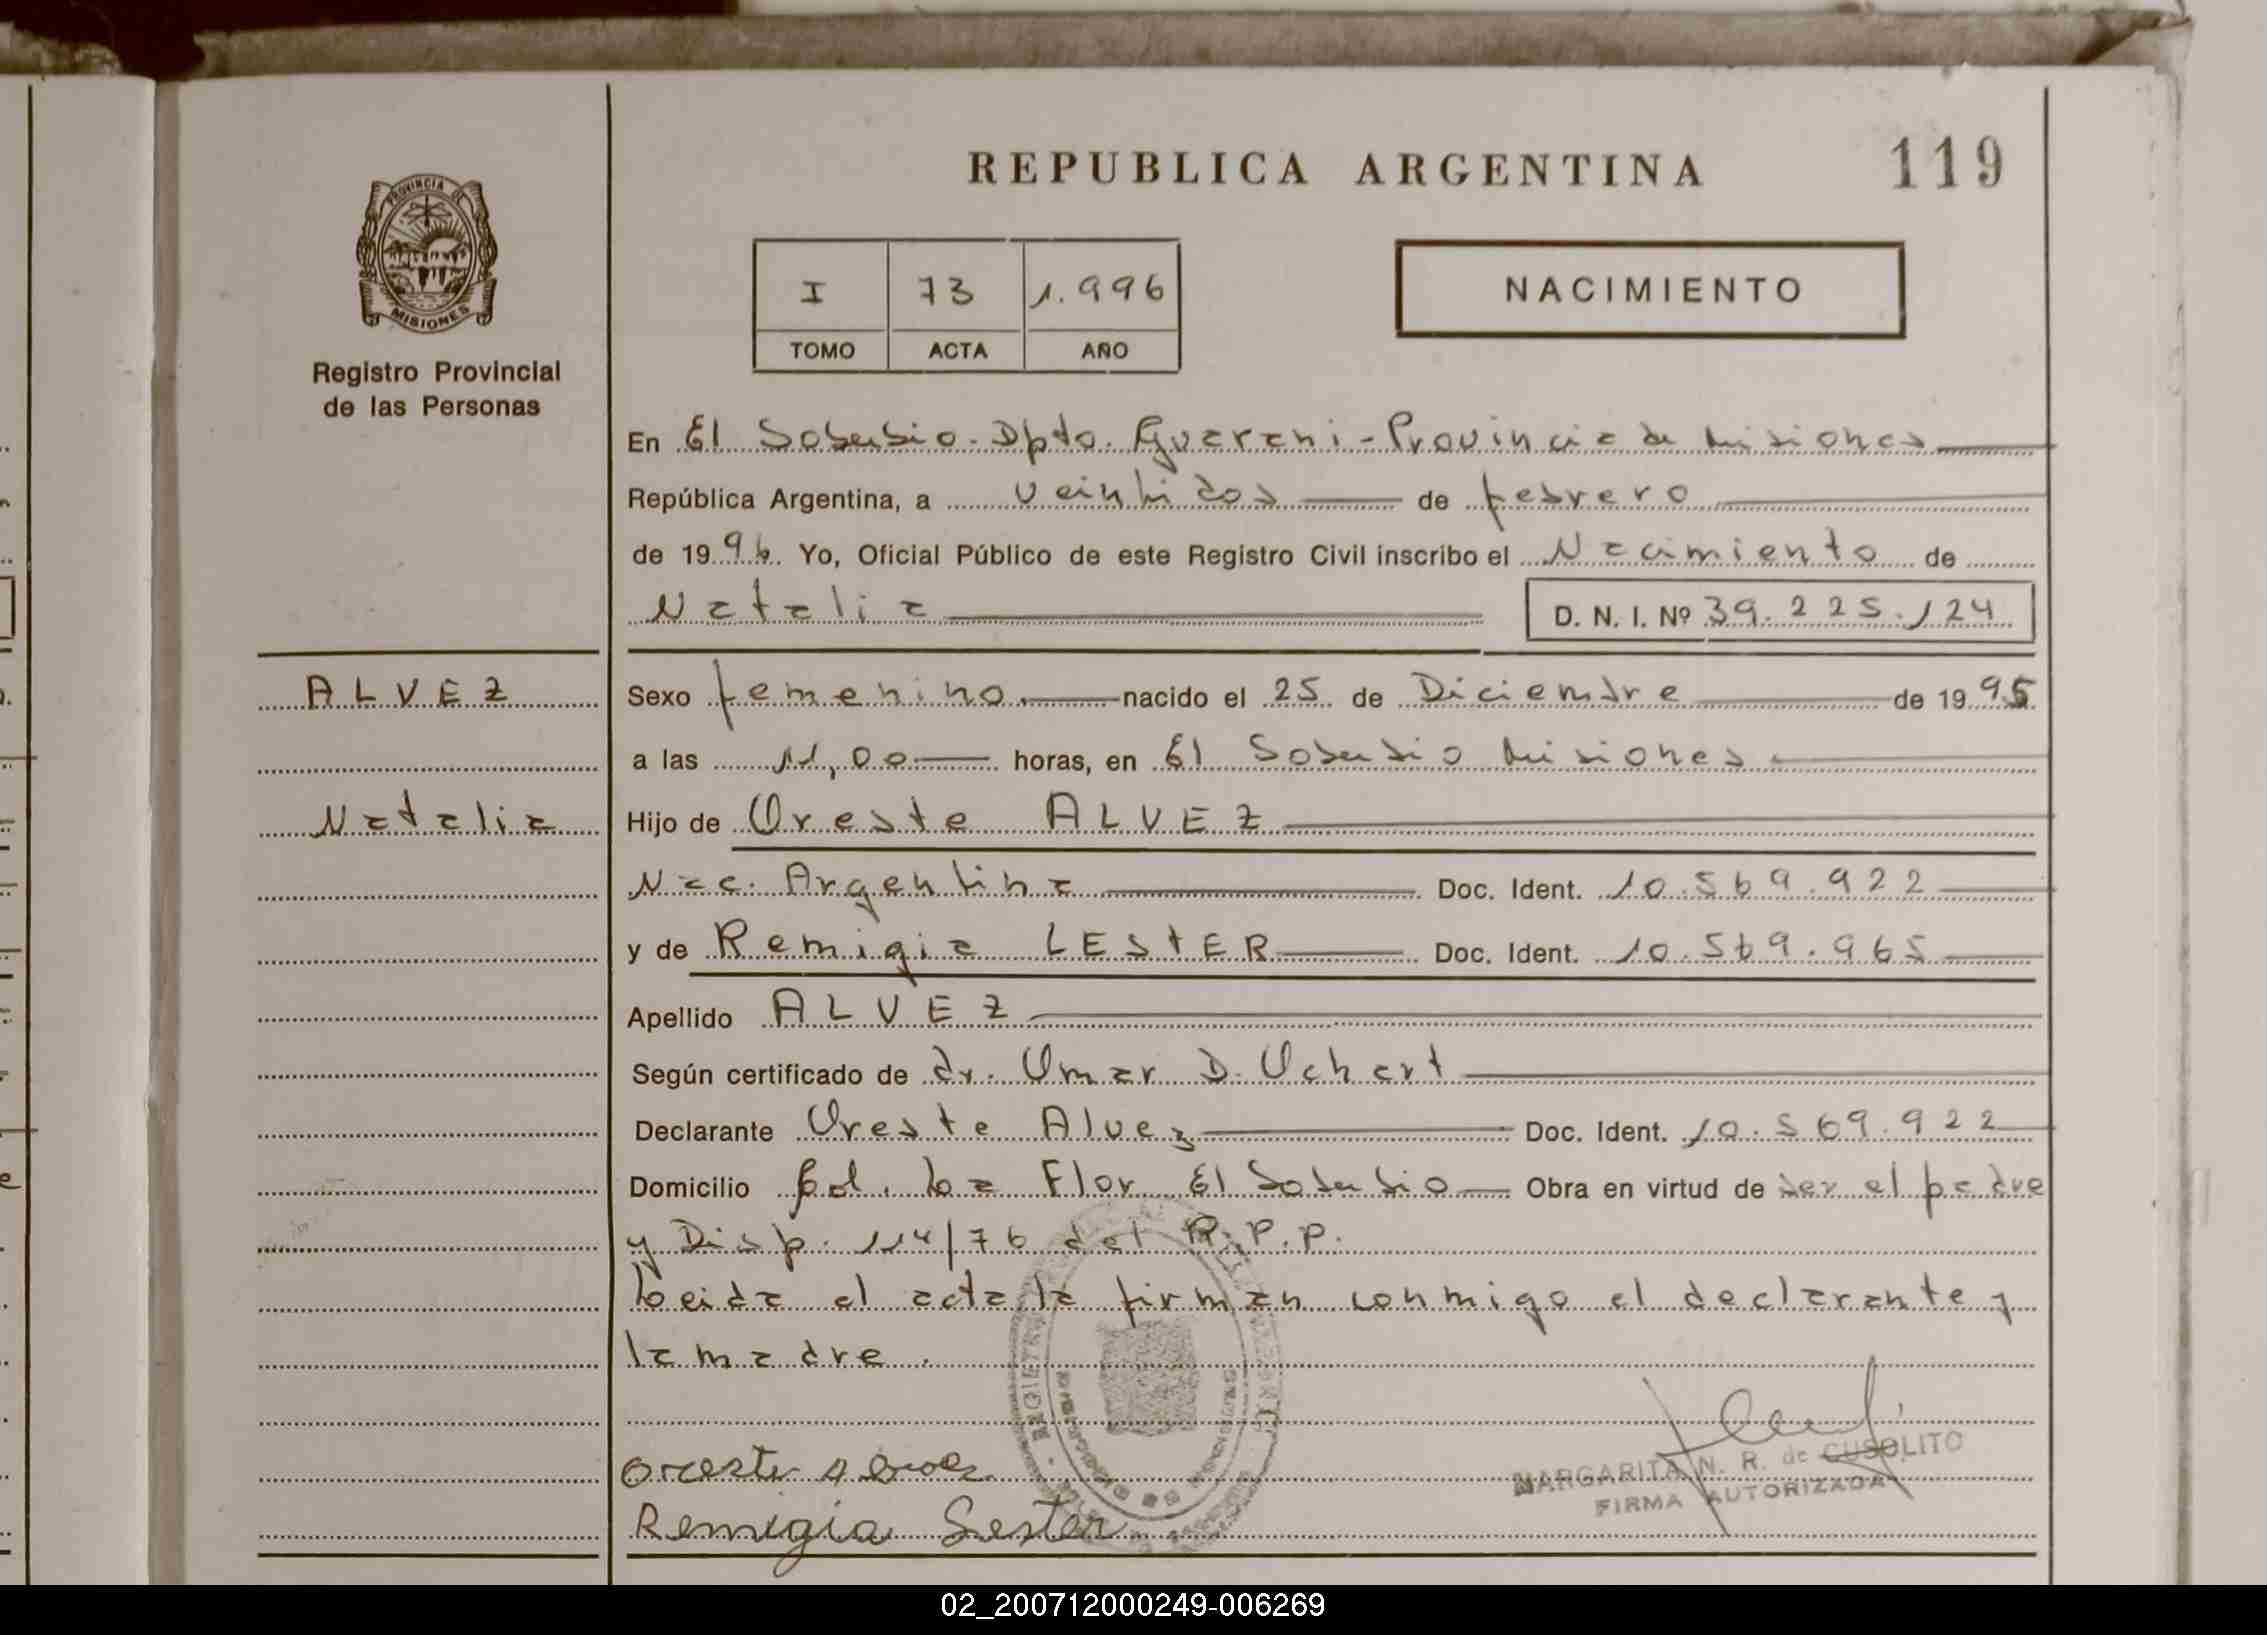 REPUBLICA ARGENTINA 119
PROVINCIA DE
MISIONES
Registro Provincial
de las Personas
I 73 1.996
TOMO ACTA AÑO
NACIMIENTO
En El Soberbio. Dpto. Guarani - Provincia de Misiones
República Argentina, a veintidos de febrero
de 1996. Yo, Oficial Público de este Registro Civil inscribo el Nacimiento de
Natalia D. N. I. Nº 39.225.124
ALVEZ
Natalia
Sexo femenino. nacido el 25 de Diciembre de 1995
a las 11,00 horas, en El Soberbio Misiones
Hijo de Oreste ALVEZ
Nac. Argentina Doc. Ident. 10.569.922
y de Remigia LESTER Doc. Ident. 10.569.965
Apellido ALVEZ
Según certificado de dr. Omar D. Ochart
Declarante Oreste Alvez Doc. Ident. 10.569.922
Domicilio Col. La Flor El Soberbio Obra en virtud de ser el padre
y Disp. 114/76 del R.P.P.
Leida el acta la firman conmigo el declarante y
la madre.
Oreste Alvez
Remigia Lester
MARGARITA N. R. de CUSOLITO
FIRMA AUTORIZADA
02_200712000249-006269